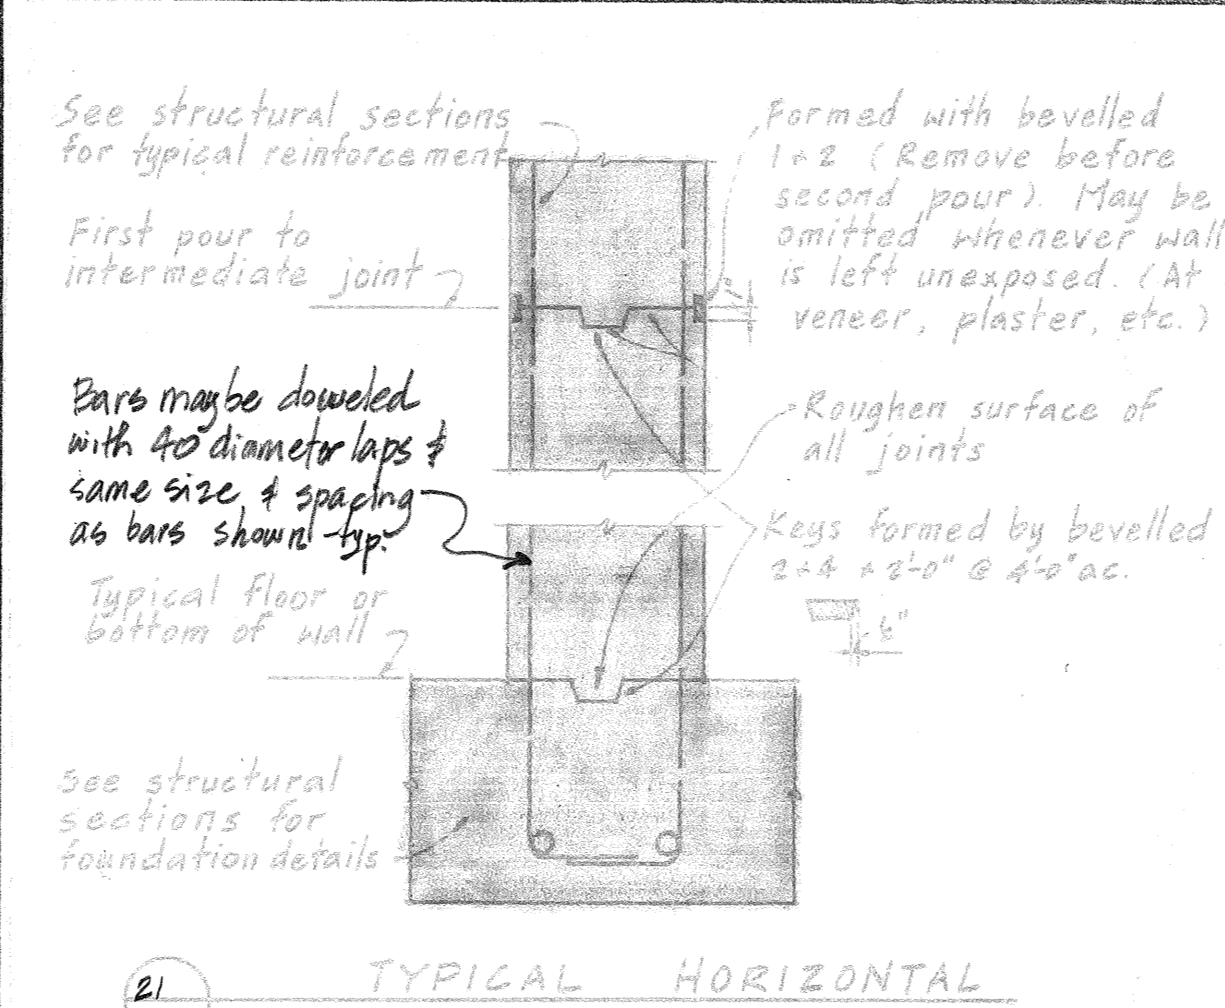 See structural sections
for typical reinforcement
First pour to
intermediate joint
Bars maybe doweled
with 40 diametor laps &
same size & spacing
as bars shown typ.
Typical floor or
bottom of wall
See structural
sections for
foundation details
Formed with bevelled
1 x 2 (Remove before
second pour). May be
omitted whenever wall
is left unexposed. (At
veneer, plaster, etc.)
1"
Roughen surface of
all joints
Keys formed by bevelled
2x4 x 2'-0" @ 4'-0" oc.
21
TYPICAL HORIZONTAL